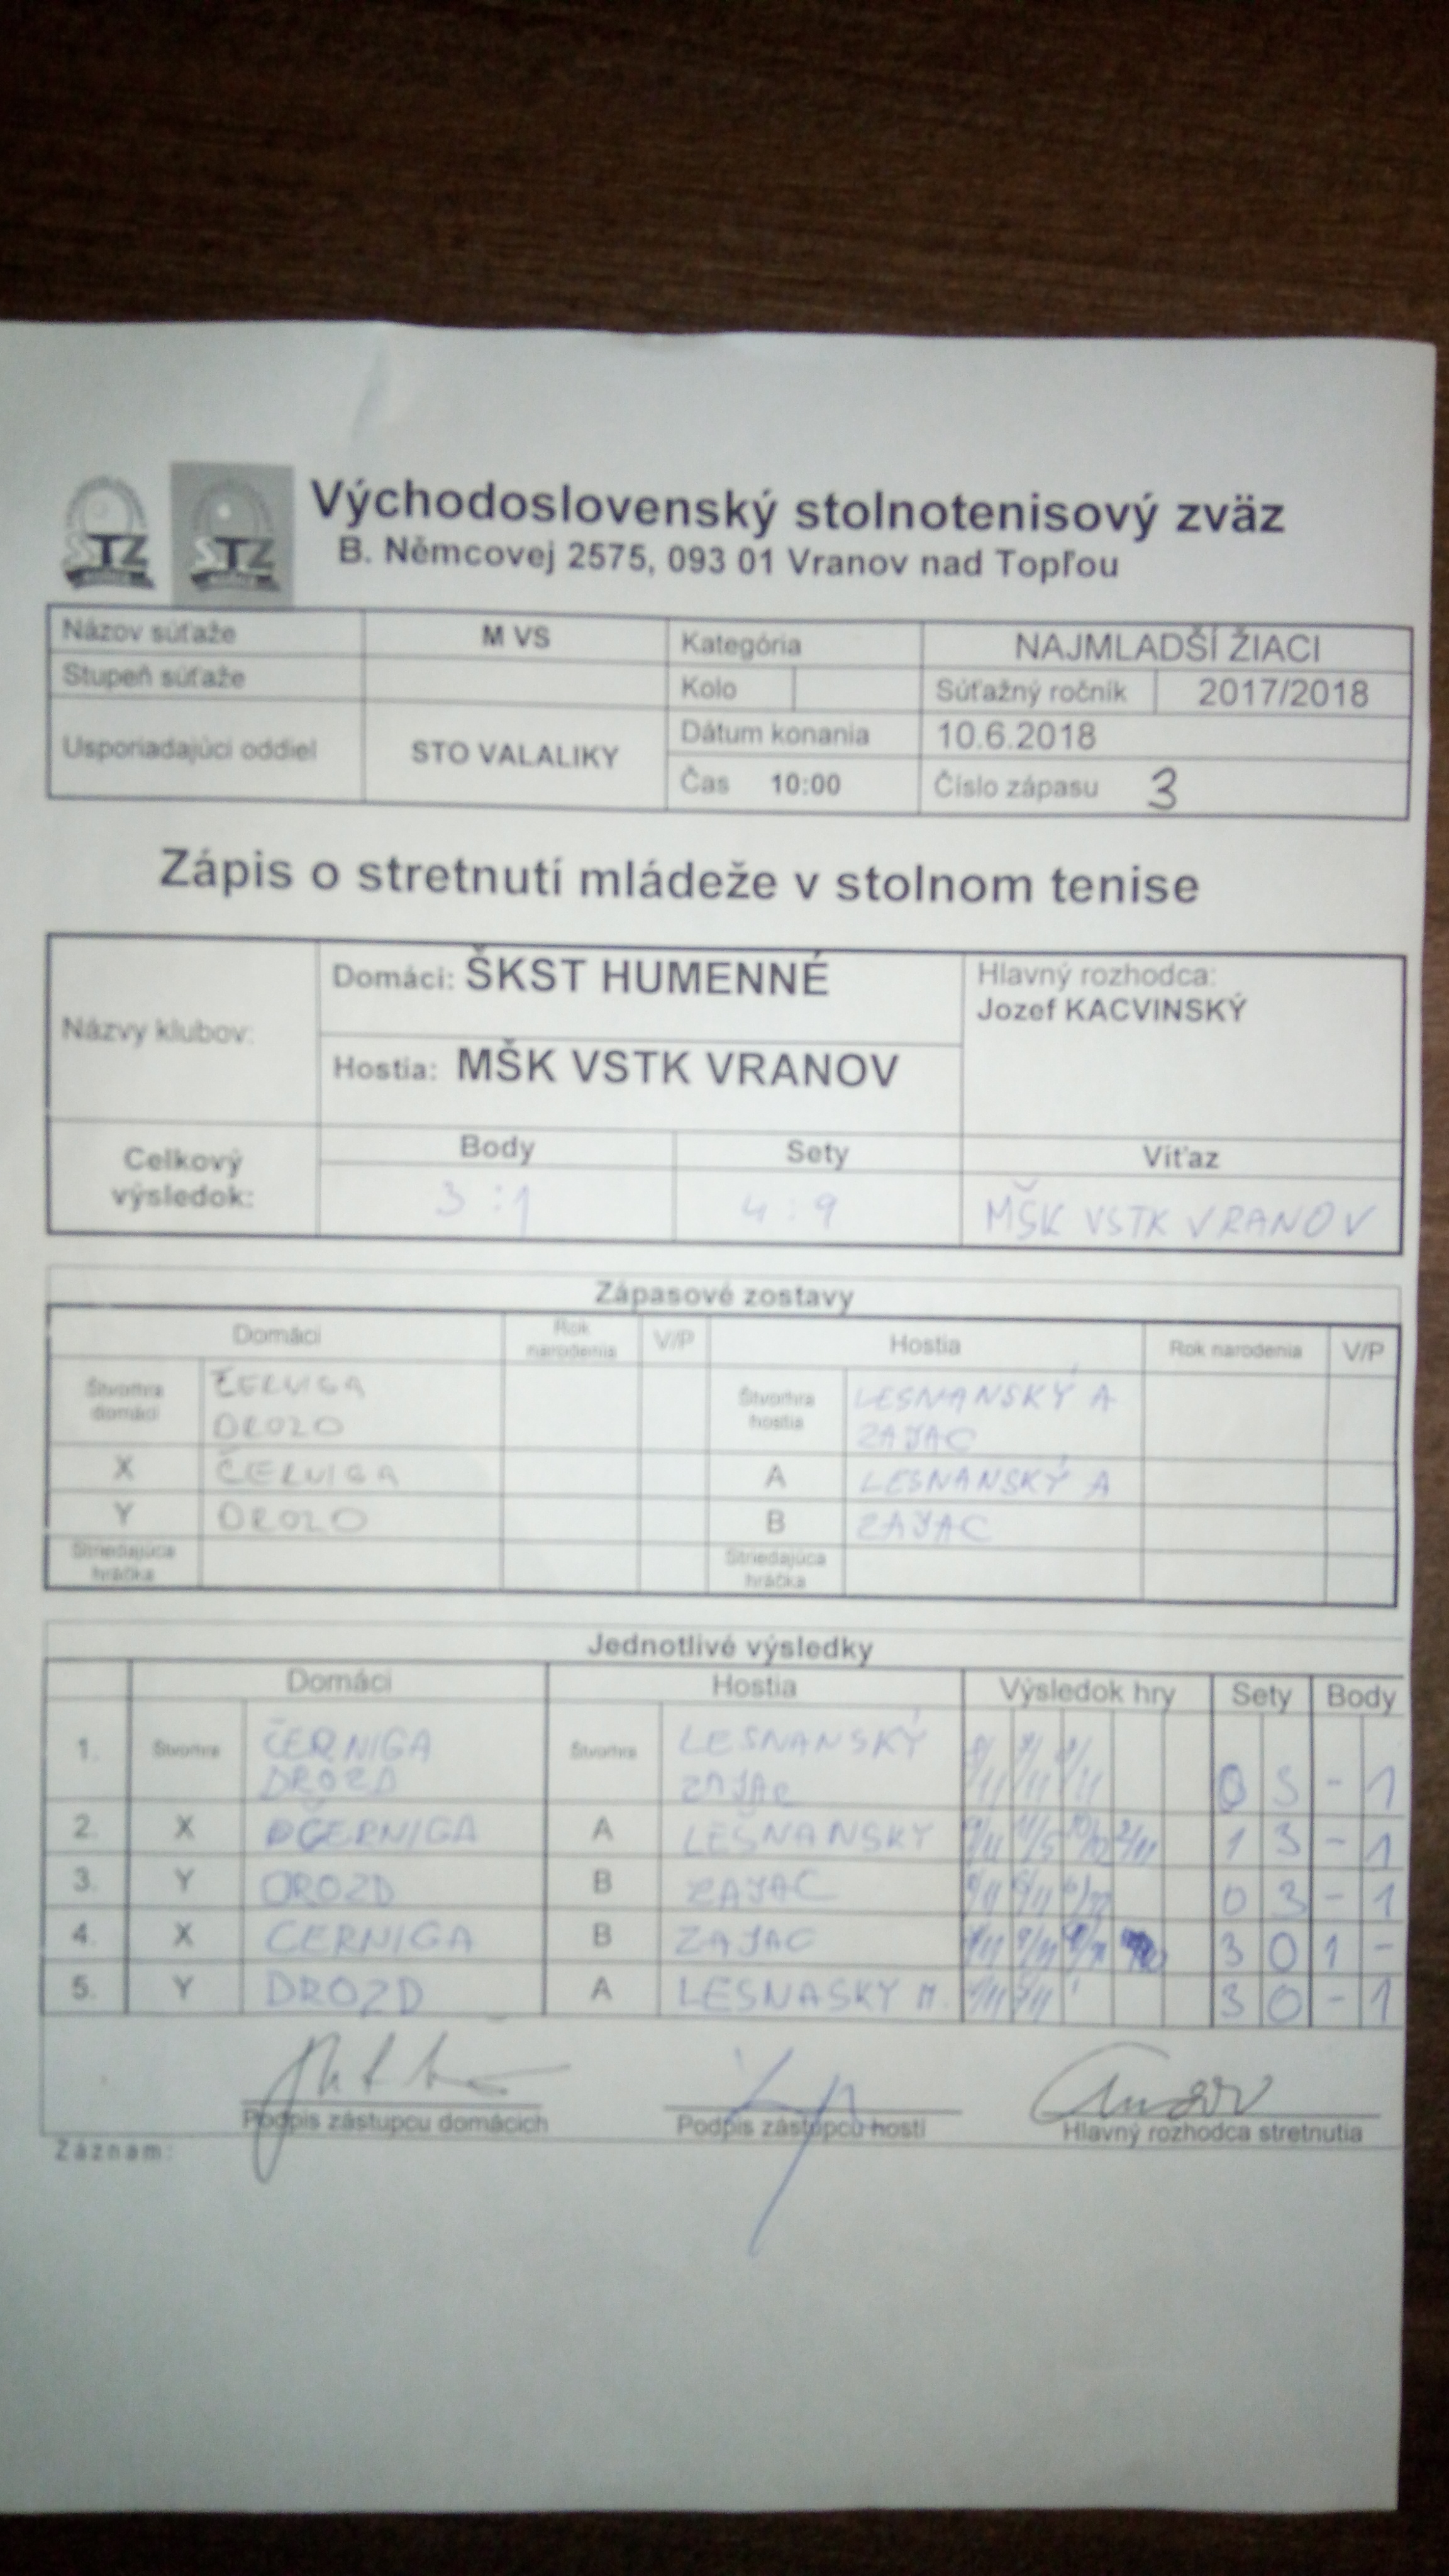 STZ STZ
Východoslovenský stolnotenisový zväz
B. Němcovej 2575, 093 01 Vranov nad Topľou
Názov súťaže M VS Kategória NAJMLADŠÍ ŽIACI
Stupeň súťaže Kolo Súťažný ročník 2017/2018
Usporiadajúci oddiel STO VALALIKY Dátum konania 10.6.2018
Čas 10:00 Číslo zápasu 3
Zápis o stretnutí mládeže v stolnom tenise
Názvy klubov: Domáci: ŠKST HUMENNÉ Hlavný rozhodca:
Jozef KACVINSKÝ
Hostia: MŠK VSTK VRANOV
Celkový výsledok: Body Sety Víťaz
3 : 1 4 : 9 MŠK VSTK VRANOV
Zápasové zostavy
Domáci Rok narodenia V/P Hostia Rok narodenia V/P
Štvorhra domáci ČERNIGA Štvorhra hostia LESNANSKÝ A
DROZD ZAJAC
X ČERNIGA A LESNANSKÝ A
Y DROZD B ZAJAC
Striedajúca hráčka Striedajúca hráčka
Jednotlivé výsledky
Domáci Hostia Výsledok hry Sety Body
1. Štvorhra ČERNIGA Štvorhra LESNANSKÝ
DROZD ZAJAC 0 3 - 1
2. X ČERNIGA A LESNANSKY 1 3 - 1
3. Y DROZD B ZAJAC 0 3 - 1
4. X CERNIGA B ZAJAC 3 0 1 -
5. Y DROZD A LESNASKY M. 3 0 - 1
Podpis zástupcu domácich Podpis zástupcu hostí Hlavný rozhodca stretnutia
Záznam: